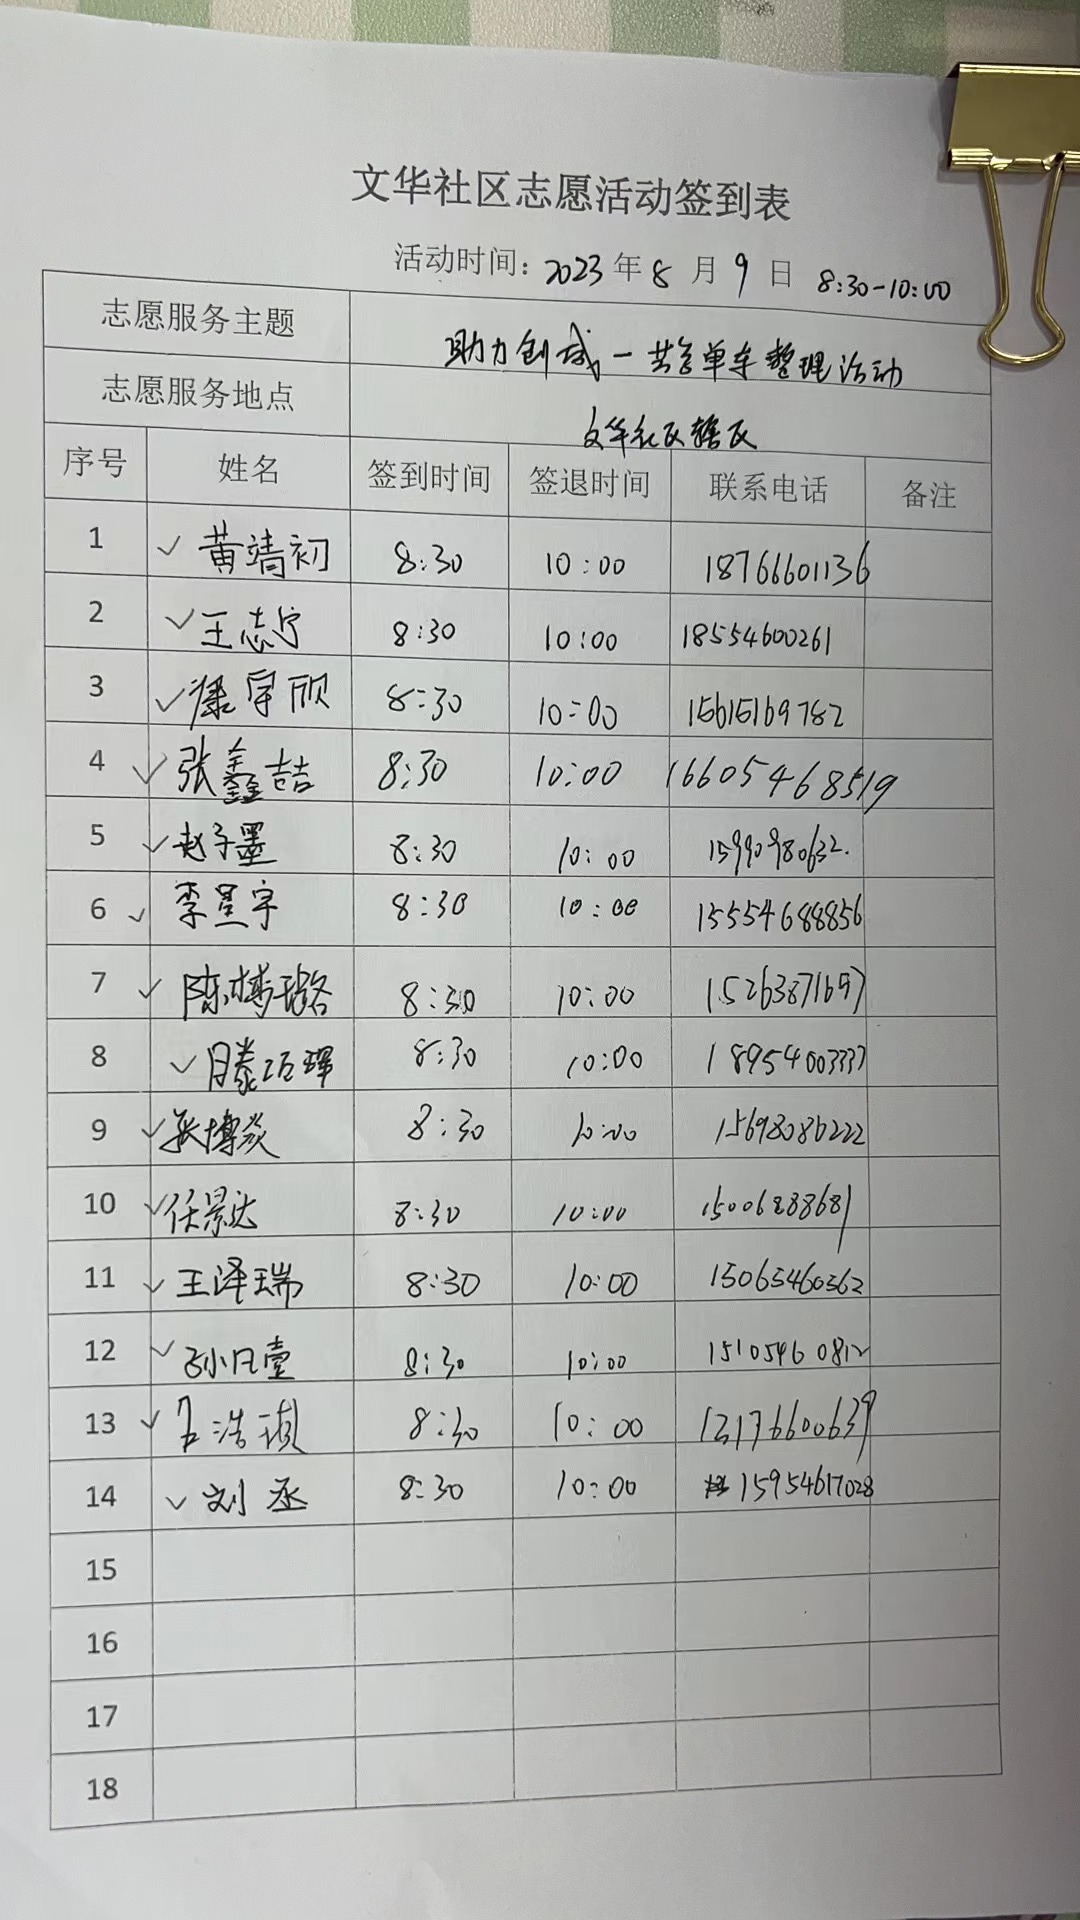 文华社区志愿活动签到表
活动时间：2023年8月9日 8:30-10:00
志愿服务主题 助力创城—共享单车整理活动
志愿服务地点 文华社区辖区
序号 姓名 签到时间 签退时间 联系电话 备注
1 ✓ 黄靖初 8:30 10:00 18766601136
2 ✓ 王志宁 8:30 10:00 18554600261
3 ✓ 康宇欣 8:30 10:00 15615169782
4 ✓ 张鑫喆 8:30 10:00 16605468519
5 ✓ 赵子墨 8:30 10:00 15990980632.
6 ✓ 李星宇 8:30 10:00 15554688856
7 ✓ 陈博璐 8:30 10:00 15263871697
8 ✓ 滕 8:30 10:00 18954003337
9 ✓ 张博焱 8:30 10:00 15698086222
10 ✓ 任景达 8:30 10:00 15006888681
11 ✓ 王泽瑞 8:30 10:00 15065460562
12 ✓ 孙凡壹 8:30 10:00 15105460812
13 ✓ 王浩 8:30 10:00
14 ✓ 刘丞 8:30 10:00 15954617028
15
16
17
18